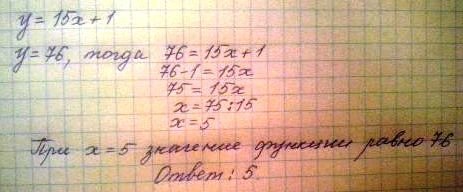 y = 15x + 1
y = 76, тогда 76 = 15x + 1
76 - 1 = 15x
75 = 15x
x = 75 : 15
x = 5
При x = 5 значение функции равно 76
Ответ: 5.